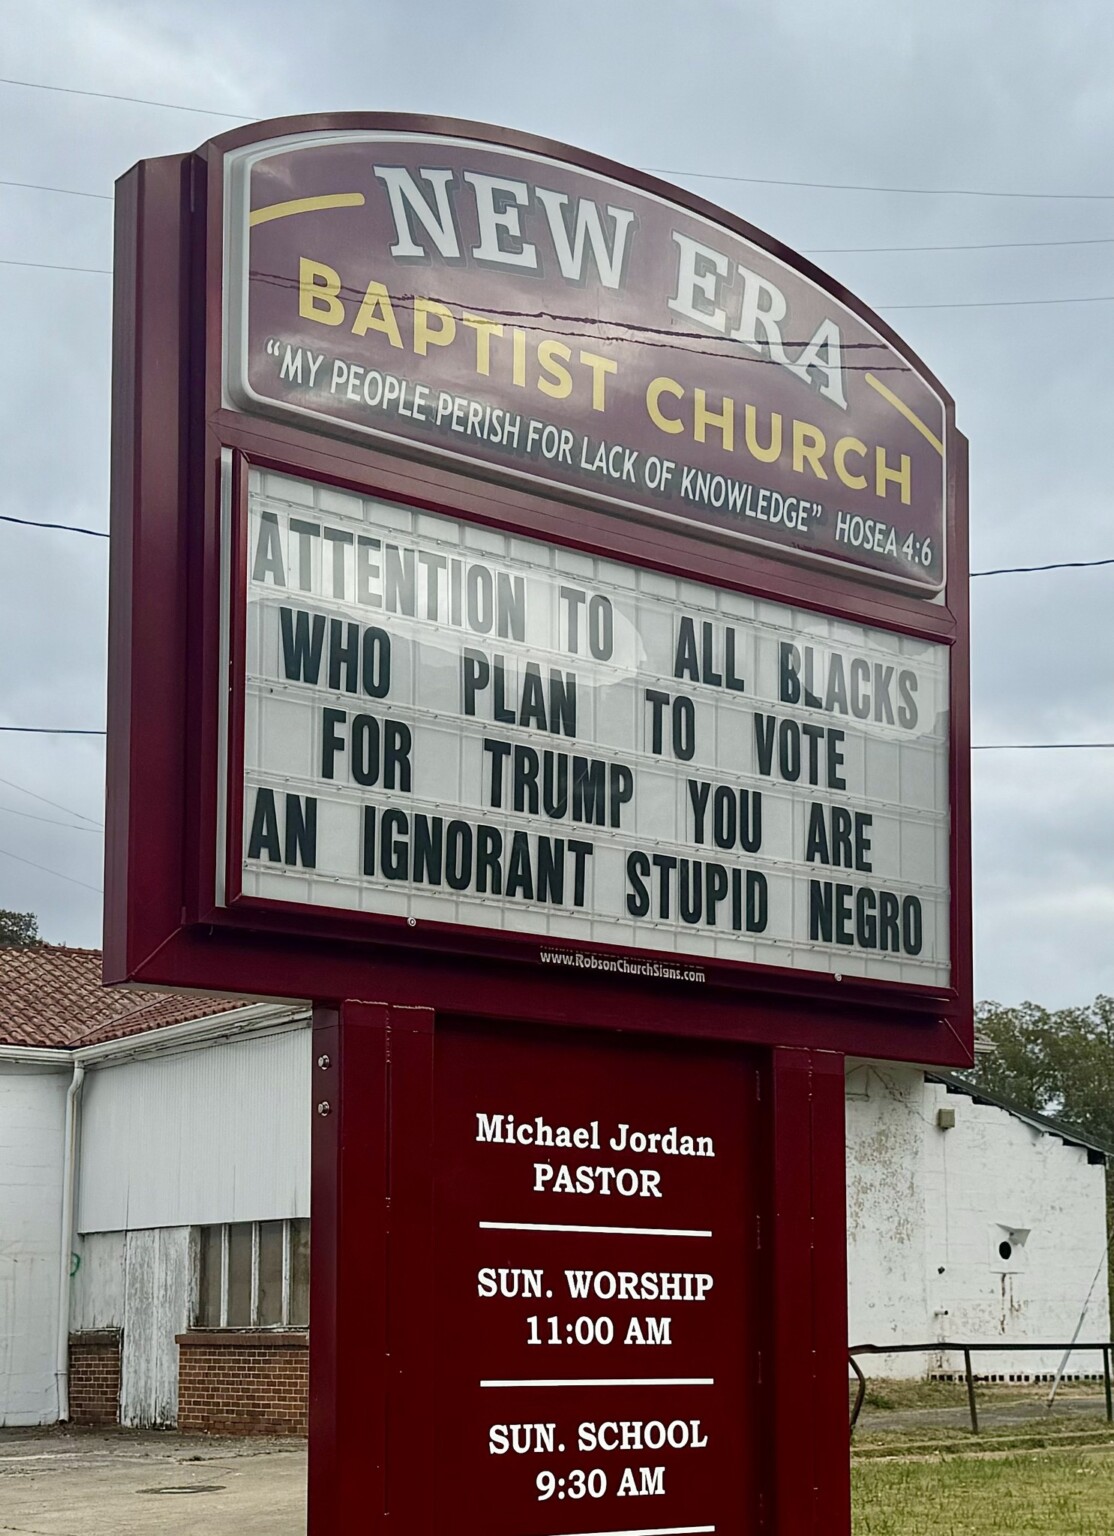 NEW ERA
BAPTIST CHURCH
“MY PEOPLE PERISH FOR LACK OF KNOWLEDGE” HOSEA 4:6
ATTENTION TO ALL BLACKS
WHO PLAN TO VOTE
FOR TRUMP YOU ARE
AN IGNORANT STUPID NEGRO
www.RobsonChurchSigns.com
Michael Jordan
PASTOR
SUN. WORSHIP
11:00 AM
SUN. SCHOOL
9:30 AM